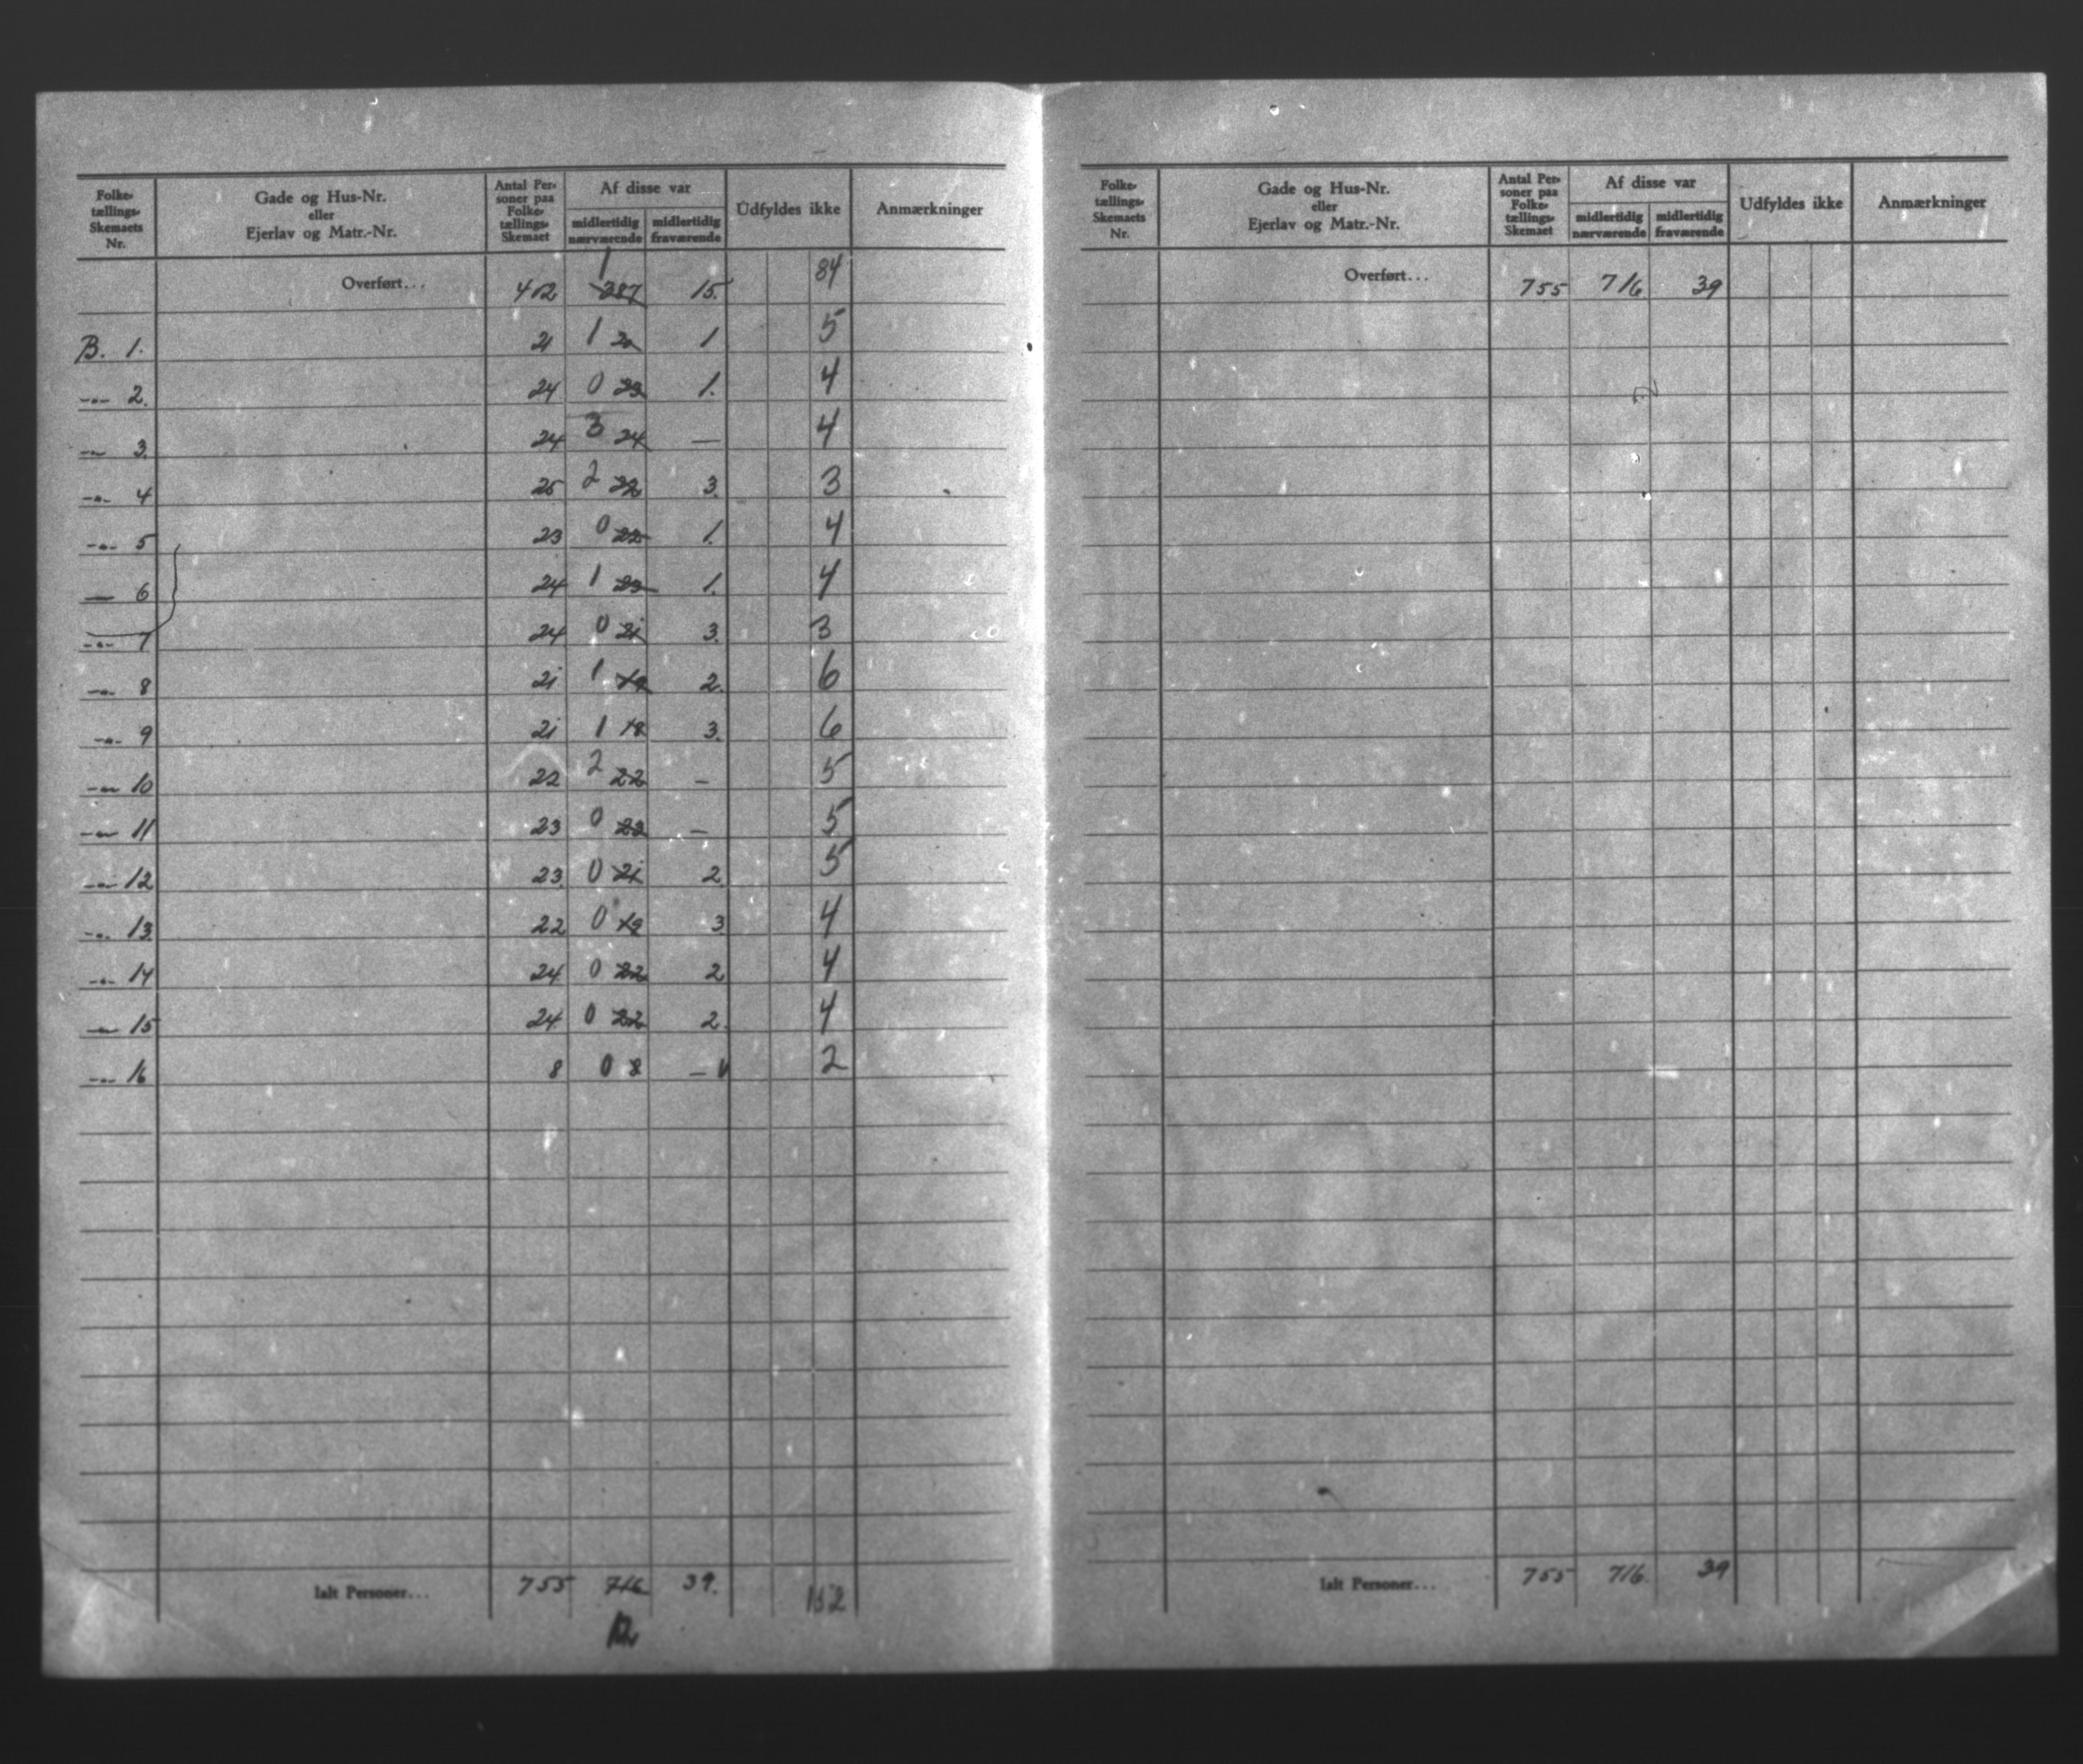 Folke-
tællings-
Skemaets
Nr.
Gade og Hus-Nr.
eller
Ejerlav og Matr.-Nr.
Antal Per-
soner paa
Folke-
tællings-
Skemaet
Af disse var
midlertidig
nærværende
midlertidig
fraværende
Udfyldes ikke
Anmærkninger
Overført... 402 1 387 15. 84
B. 1. 21 1 20 1 5
-"- 2. 24 0 23 1. 4
-"- 3. 24 3 24 — 4
-"- 4 25 2 22 3. 3
-"- 5 23 0 22 1. 4
— 6 24 1 23 1. 4
-"- 7 24 0 21 3. 3
-"- 8 21 1 19 2. 6
-"- 9 21 1 18 3. 6
-"- 10 22 2 22 - 5
-"- 11 23 0 23 — 5
-"- 12 23. 0 21 2 5
-"- 13. 22 0 19 3 4
-"- 14 24 0 22 2 4
-"- 15 24 0 22 2. 4
-"- 16 8 0 8 — 2
Ialt Personer... 755 716 39. 152
12
Folke-
tællings-
Skemaets
Nr.
Gade og Hus-Nr.
eller
Ejerlav og Matr.-Nr.
Antal Per-
soner paa
Folke-
tællings-
Skemaet
Af disse var
midlertidig
nærværende
midlertidig
fraværende
Udfyldes ikke
Anmærkninger
Overført... 755 716 39
Ialt Personer... 755 716. 39